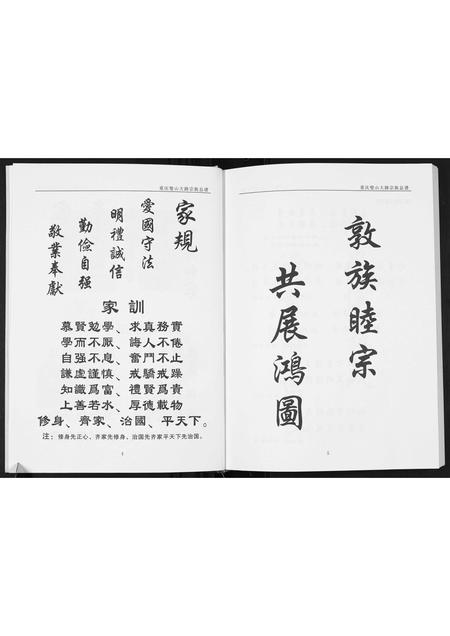 重庆璧山大路宗族总谱
家規
愛國守法
明禮誠信
勤儉自强
敬業奉獻
家訓
慕賢勉學、求真務實
學而不厭、誨人不倦
自强不息、奮鬥不止
謙虚謹慎、戒驕戒躁
知識爲富、禮賢爲貴
上善若水、厚德載物
修身、齊家、治國、平天下。
注：修身先正心，齐家先修身，治国先齐家平天下先治国。
4
重庆璧山大路宗族总谱
敦族睦宗
共展鴻圖
5